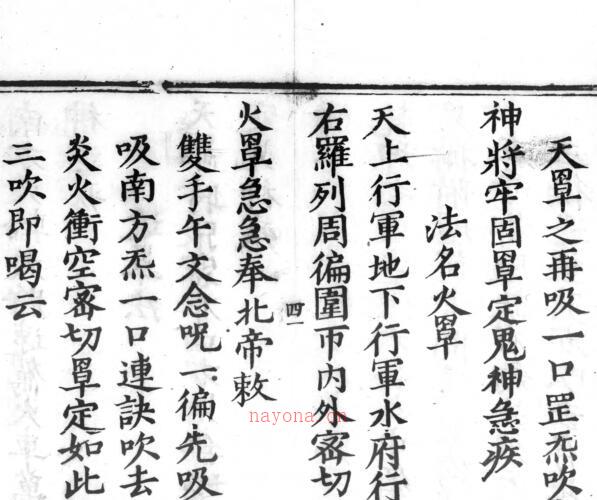 天罩之再吸一口罡炁吹
神將牢固罩定鬼神急疾
法名火罩
天上行軍地下行軍水府行
右羅列周徧圍帀内外密切
四一
火罩急急奉北帝敕
雙手午文念呪一徧先吸
吸南方炁一口連訣吹去
炎火衝空密切罩定如此
三吹即喝云
nayona.cn